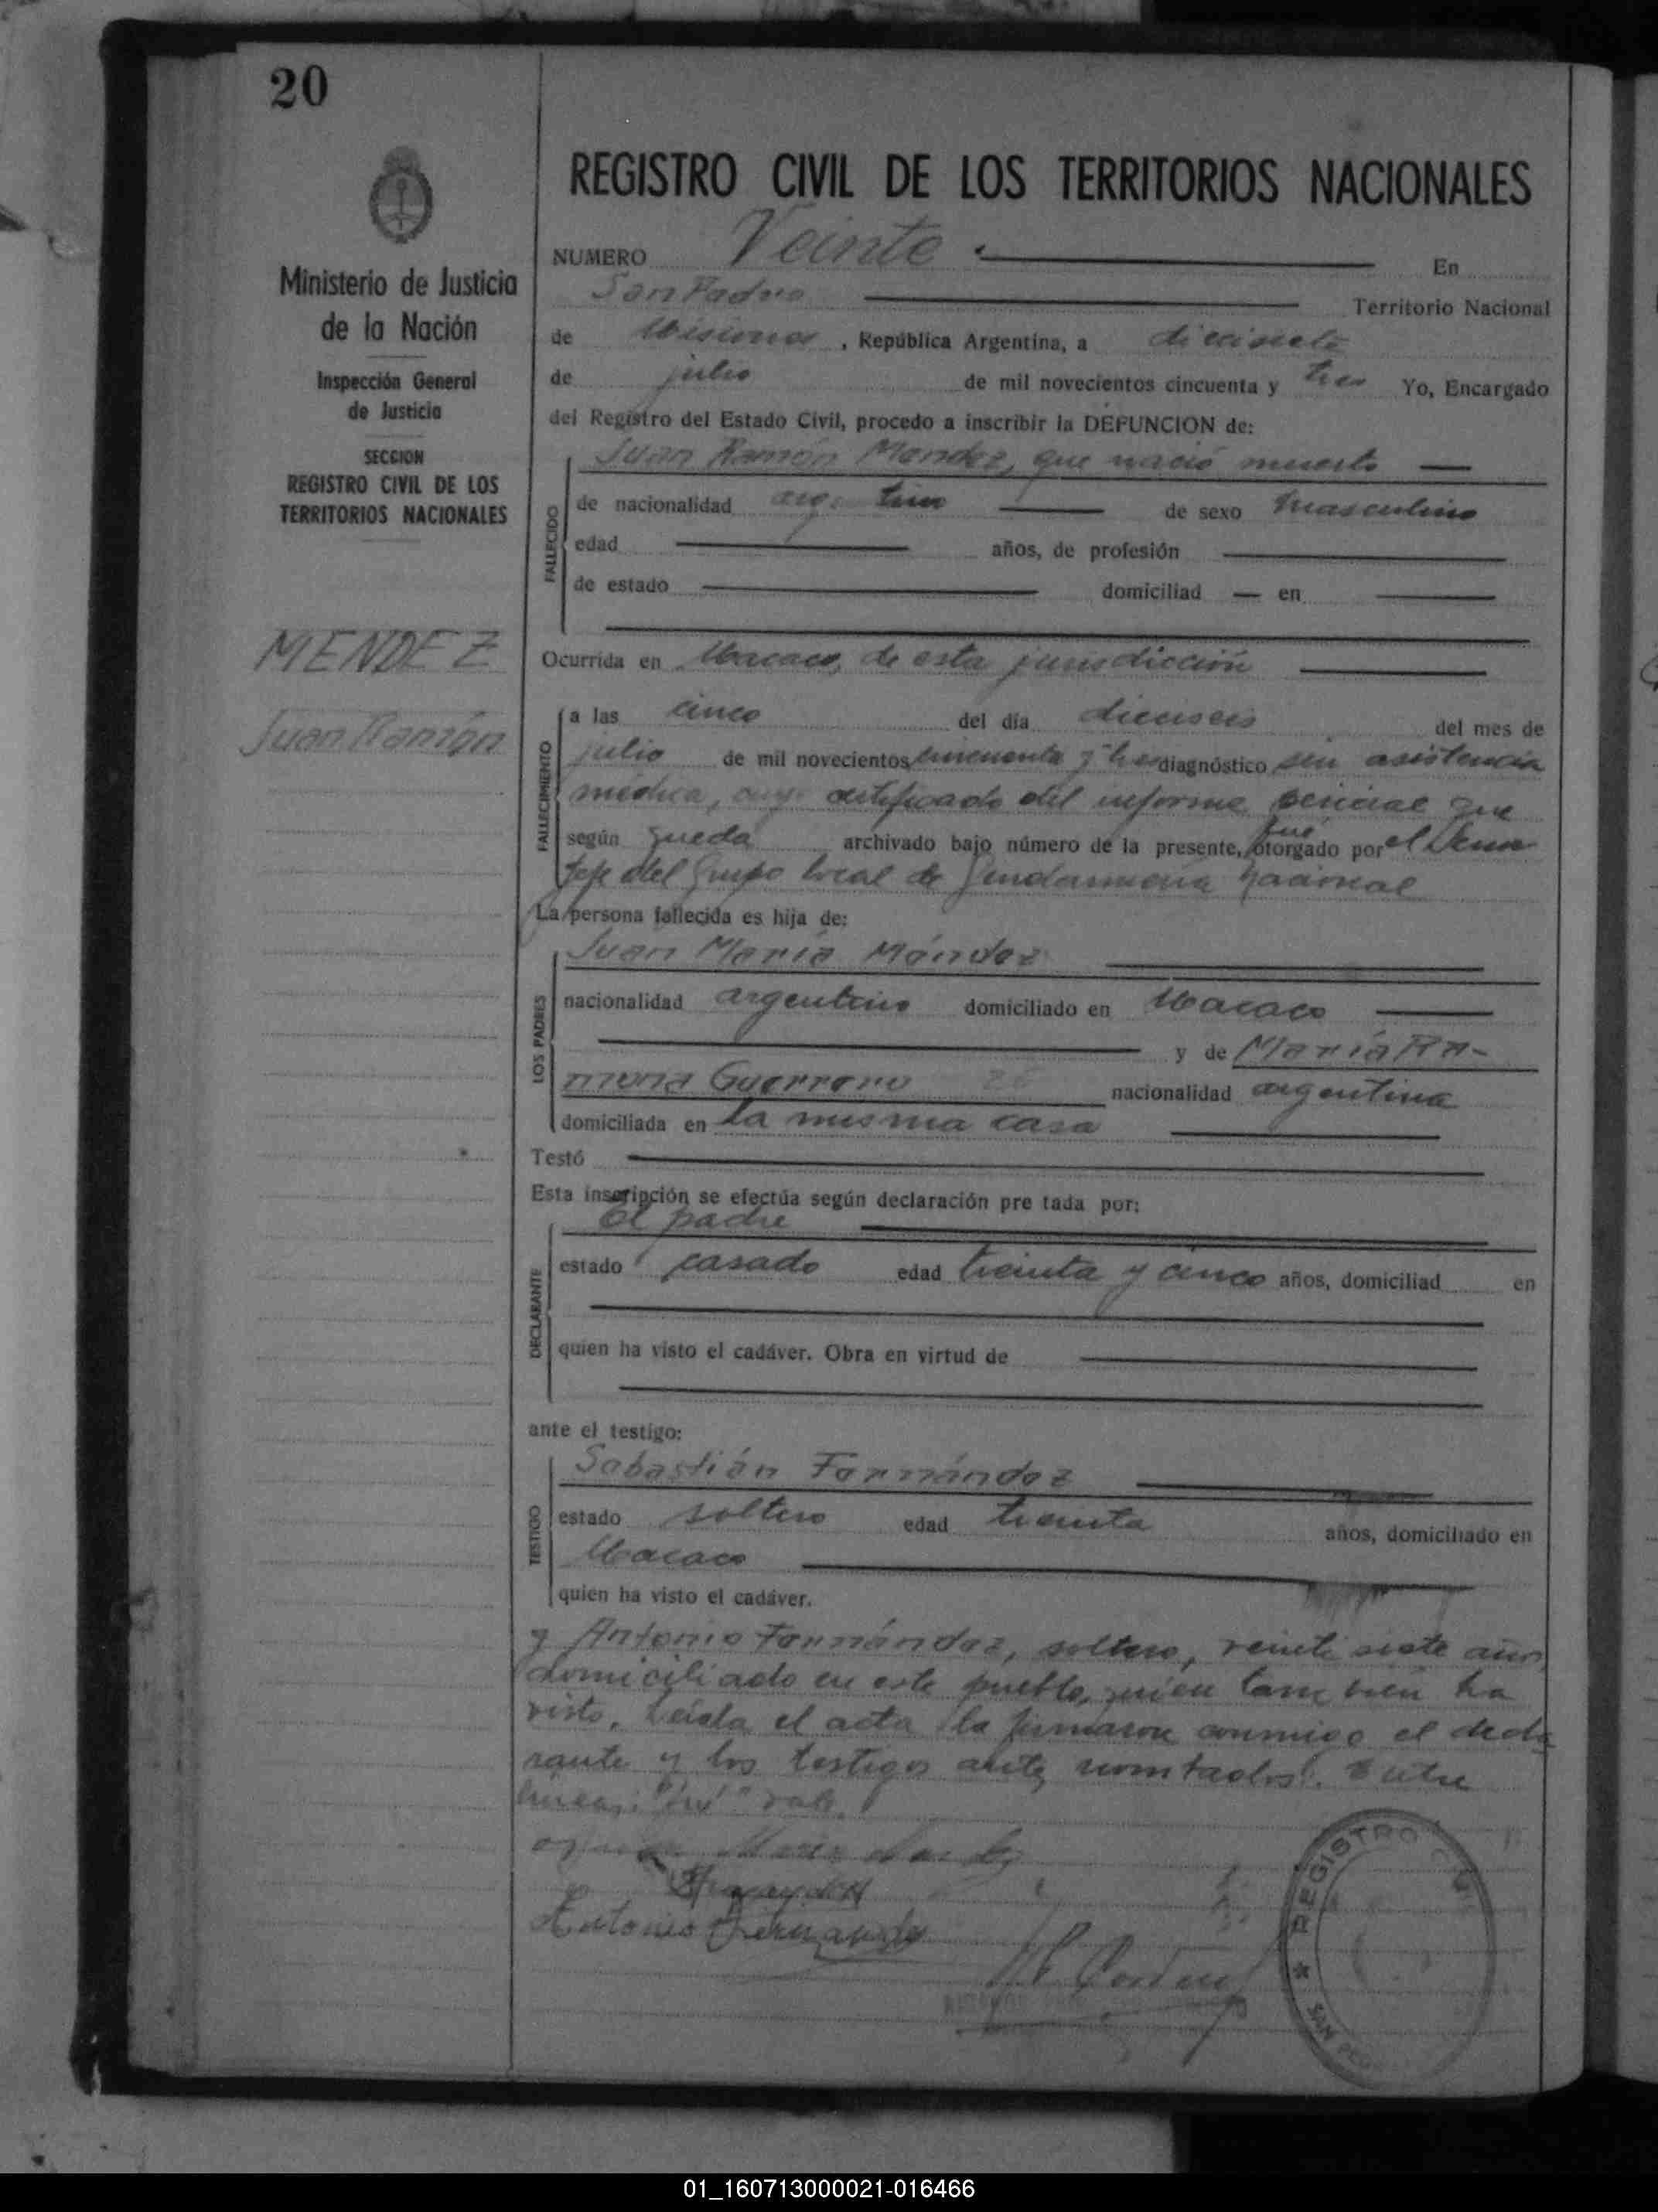 20
REGISTRO CIVIL DE LOS TERRITORIOS NACIONALES
Ministerio de Justicia
de la Nación
Inspección General
de Justicia
SECCION
REGISTRO CIVIL DE LOS
TERRITORIOS NACIONALES
MENDEZ
Juan Ramón
NUMERO Veinte En
San Pedro Territorio Nacional
de Misiones, República Argentina, a diecisiete
de julio de mil novecientos cincuenta y tres Yo, Encargado
del Registro del Estado Civil, procedo a inscribir la DEFUNCION de:
Juan Ramón Mendez, que nació muerto
FALLECIDO
de nacionalidad argentino de sexo masculino
edad años, de profesión
de estado domiciliad en
Ocurrida en Macaco, de esta jurisdicción
FALLECIMIENTO
a las cinco del día dieciseis del mes de
julio de mil novecientos cincuenta y tres diagnóstico sin asistencia
médica, certificado del informe pericial que
según queda archivado bajo número de la presente, fué otorgado por el
Jefe del Grupo local de Gendarmería Nacional
La persona fallecida es hija de:
LOS PADRES
Juan María Méndez
nacionalidad argentino domiciliado en Macaco
y de María Ra-
mona Guerrero nacionalidad argentina
domiciliada en la misma casa
Testó
Esta inscripción se efectúa según declaración pre tada por:
DECLARANTE
El padre
estado casado edad treinta y cinco años, domiciliad en
quien ha visto el cadáver. Obra en virtud de
ante el testigo:
TESTIGO
Sebastián Fernández
estado soltero edad treinta años, domiciliado en
Macaco
quien ha visto el cadáver.
y Antonio Fernández, soltero, veinti siete años,
domiciliado en este pueblo, quien tam bien ha
visto. Leída el acta la firmaron conmigo el decla
rante y los testigos antes nombrados. Entre
lineas: "fué" vale.
Antonio Fernandez
REGISTRO CIVIL
SAN PEDRO
01_160713000021-016466